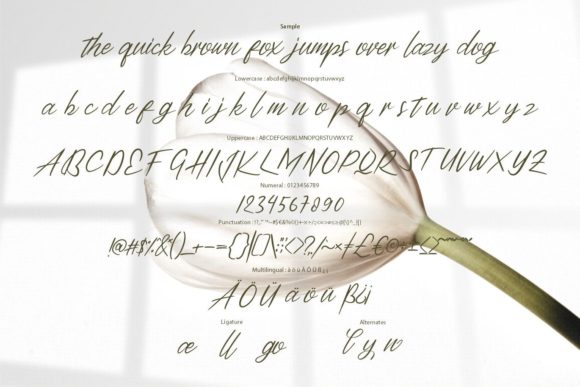 Sample
the quick brown fox jumps over lazy dog
Lowercase : abcdefghijklmnopqrstuvwxyz
a b c d e f g h i j k l m n o p q r s t u v w x y z
Uppercase : ABCDEFGHIJKLMNOPQRSTUVWXYZ
ABCDEFGHIJKLMNOPQRSTUVWXYZ
Numeral : 0123456789
1234567890
Punctuation :
Multilingual : ä ö ü Ä Ö Ü ß ¿ ¡
ÄÖÜ äöü ß¿¡
Ligature
Alternates
æ ll go